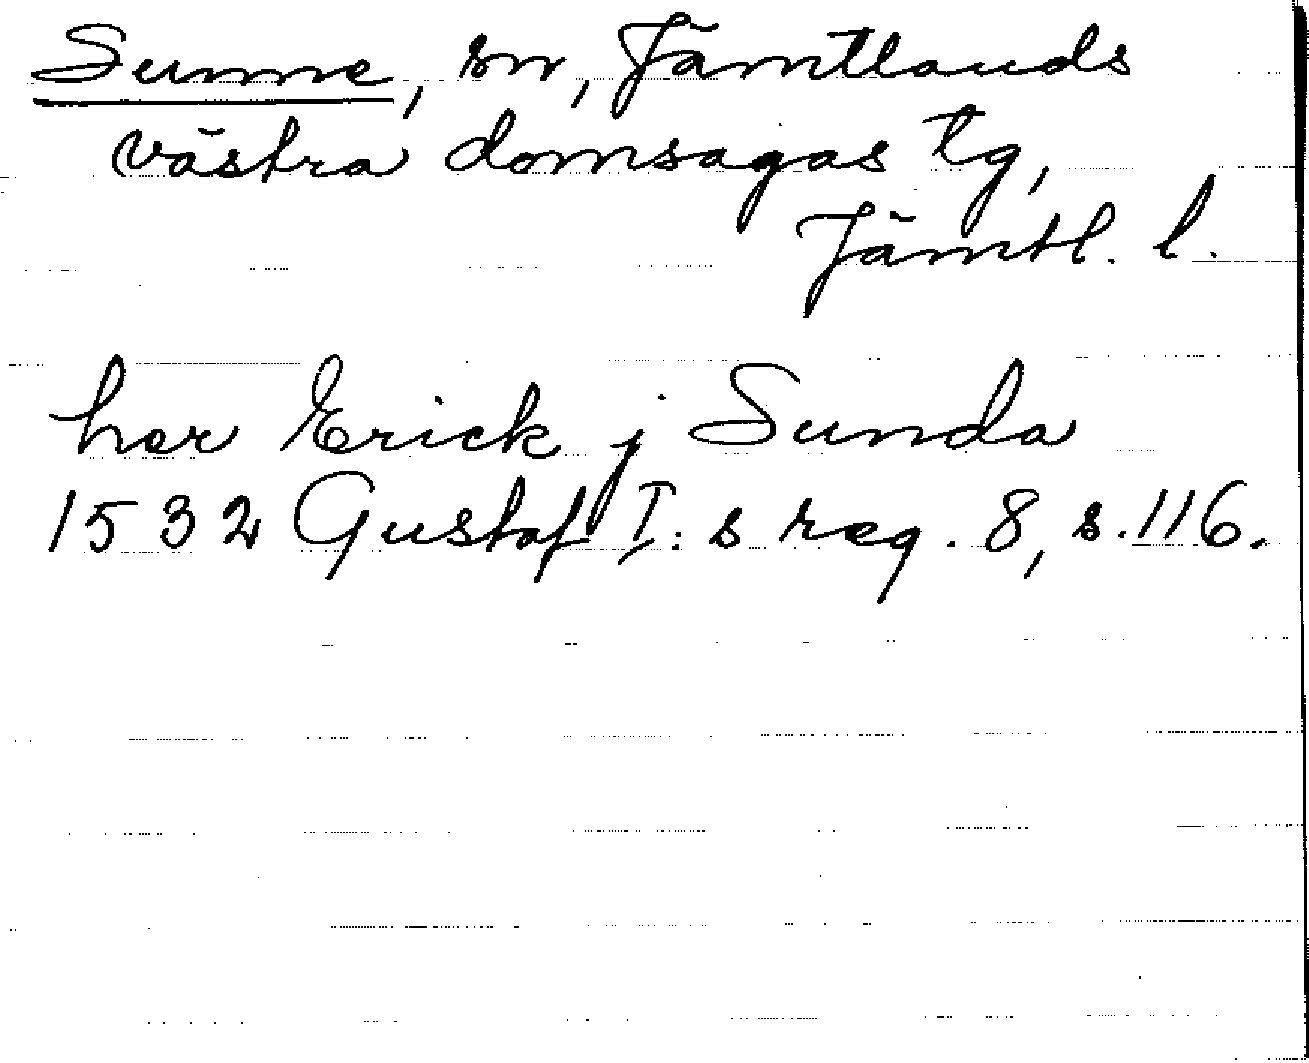 Sunne, sn, Jämtlands
västra domsagas tg,
Jämtl. l.
her Erick j Sunda
1532 Gustaf I:s reg. 8, s. 116.